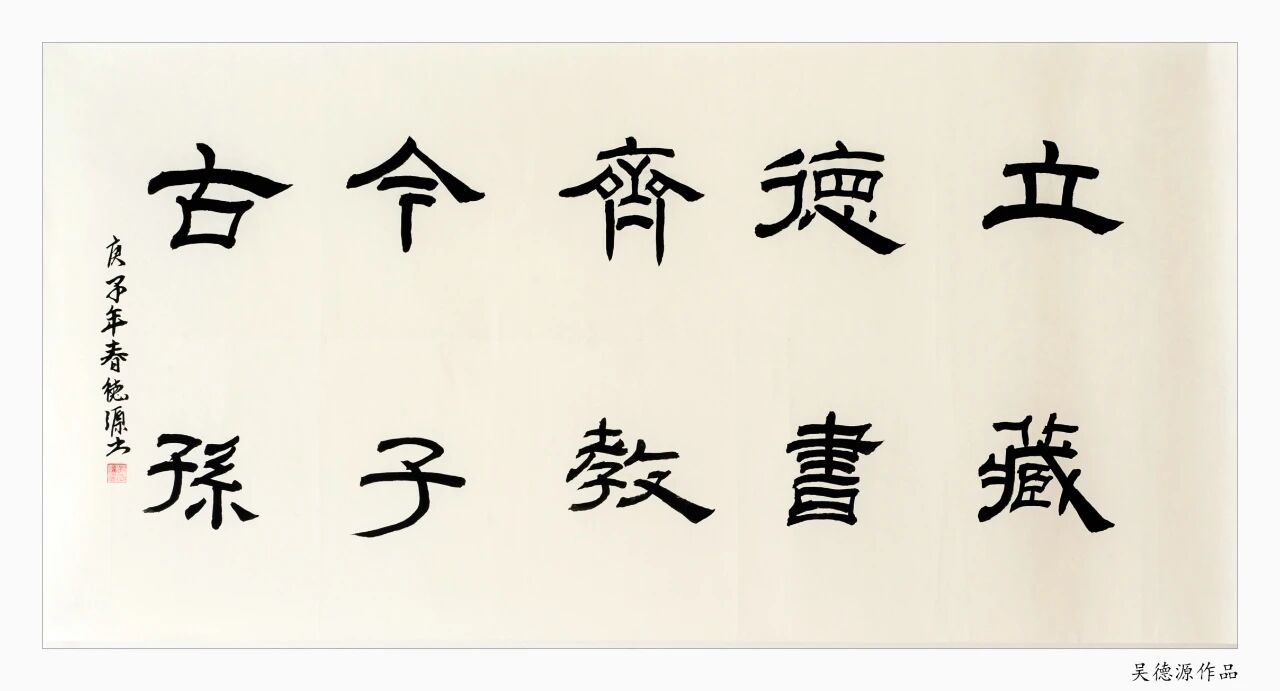 立德齊今古
藏書教子孫
庚子年春德源书
吴德源作品